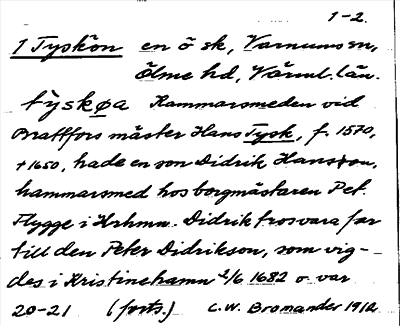 1-2.
1 Tyskön en ö sk, Varnums sn,
Ölme hd, Värml. län.
tỳskøa Kammarsmeden vid
Brattfors mäster Hans Tysk, f. 1570,
+1650, hade en son Didrik Hansson,
hammarsmed hos borgmästaren Pet.
Flygge i Krhmn. Didrik tros vara far
till den Peter Didrikson, som vig-
des i Kristinehamn 2/6 1682 o. var
20-21 (forts.) C.W. Bromander 1912.